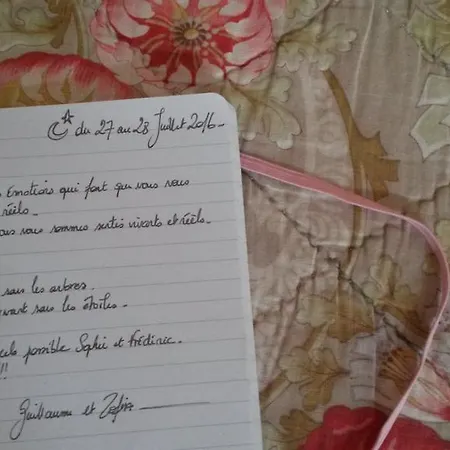 du 27 au 28 Juillet 2016_
émotions qui font que vous nous
réels_
nous nous sommes sentis vivants et réels_
sous les arbres_
vivant sous les étoiles_
possible Sophie et Frédéric_
!!
Guillaume et